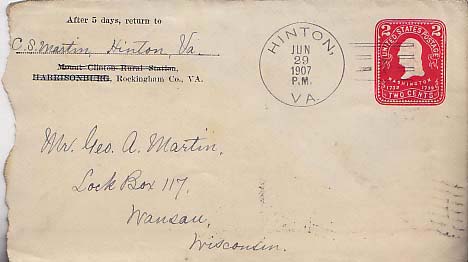 After 5 days, return to
C. S. Martin, Hinton, Va.
Mount Clinton Rural Station,
HARRISONBURG, Rockingham Co., VA.
HINTON,
JUN
29
1907
P.M.
VA.
UNITED STATES POSTAGE
2 2
WASHINGTON
1732 1799
TWO CENTS
Mr. Geo. A. Martin,
Lock Box 117,
Wausau,
Wisconsin.